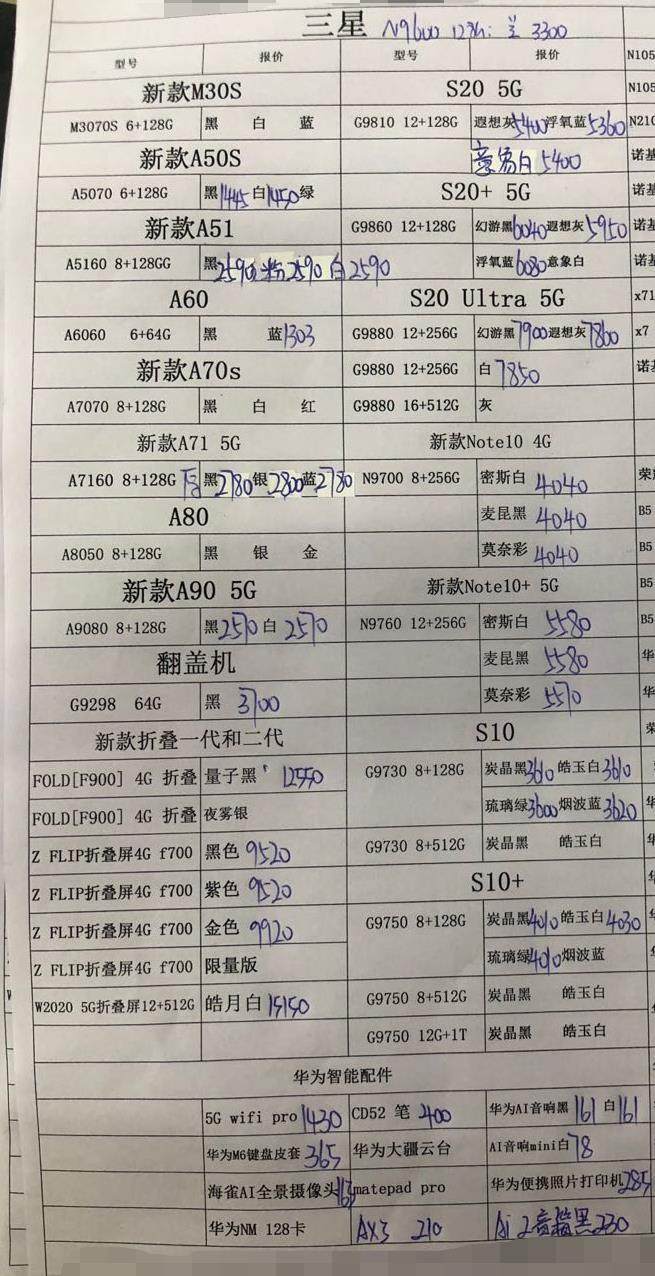 三星 N9600 128G: 兰 3300
型号 报价 型号 报价 N105
新款M30S S20 5G N105
M3070S 6+128G 黑 白 蓝 G9810 12+128G 遐想灰5400浮氧蓝5360 N210
新款A50S 意象白5400 诺基
A5070 6+128G 黑1445白1450绿 S20+ 5G 诺基
新款A51 G9860 12+128G 幻游黑6040遐想灰5950 诺基
A5160 8+128GG 黑2590粉2590白2590 浮氧蓝6080意象白 诺基
A60 S20 Ultra 5G x71
A6060 6+64G 黑 蓝1303 G9880 12+256G 幻游黑7900遐想灰7860 x7
新款A70s G9880 12+256G 白7850 诺基
A7070 8+128G 黑 白 红 G9880 16+512G 灰
新款A71 5G 新款Note10 4G
A7160 8+128G 黑2780银2800蓝2780 N9700 8+256G 密斯白 4040 荣
A80 麦昆黑 4040 B5
A8050 8+128G 黑 银 金 莫奈彩 4040 B5
新款A90 5G 新款Note10+ 5G B5
A9080 8+128G 黑2570白 2570 N9760 12+256G 密斯白 5580 B5
翻盖机 麦昆黑 5580 华
G9298 64G 黑 3700 莫奈彩 5570 华
新款折叠一代和二代 S10 荣
FOLD[F900] 4G 折叠 量子黑 12550 G9730 8+128G 炭晶黑3610 皓玉白3610
FOLD[F900] 4G 折叠 夜雾银 琉璃绿3600烟波蓝3620 华
Z FLIP折叠屏4G f700 黑色 9520 G9730 8+512G 炭晶黑 皓玉白 华
Z FLIP折叠屏4G f700 紫色 9520 S10+ 华
Z FLIP折叠屏4G f700 金色 9920 G9750 8+128G 炭晶黑4010皓玉白4030 华
Z FLIP折叠屏4G f700 限量版 琉璃绿4010烟波蓝 华
W2020 5G折叠屏12+512G 皓月白15150 G9750 8+512G 炭晶黑 皓玉白
G9750 12G+1T 炭晶黑 皓玉白
华为智能配件
5G wifi pro 1430 CD52 笔 400 华为AI音响黑 161 白161
华为M6键盘皮套 365 华为大疆云台 AI音响mini白78
海雀AI全景摄像头163 matepad pro 华为便携照片打印机285
华为NM 128卡 AX3 210 Ai 2音箱黑230